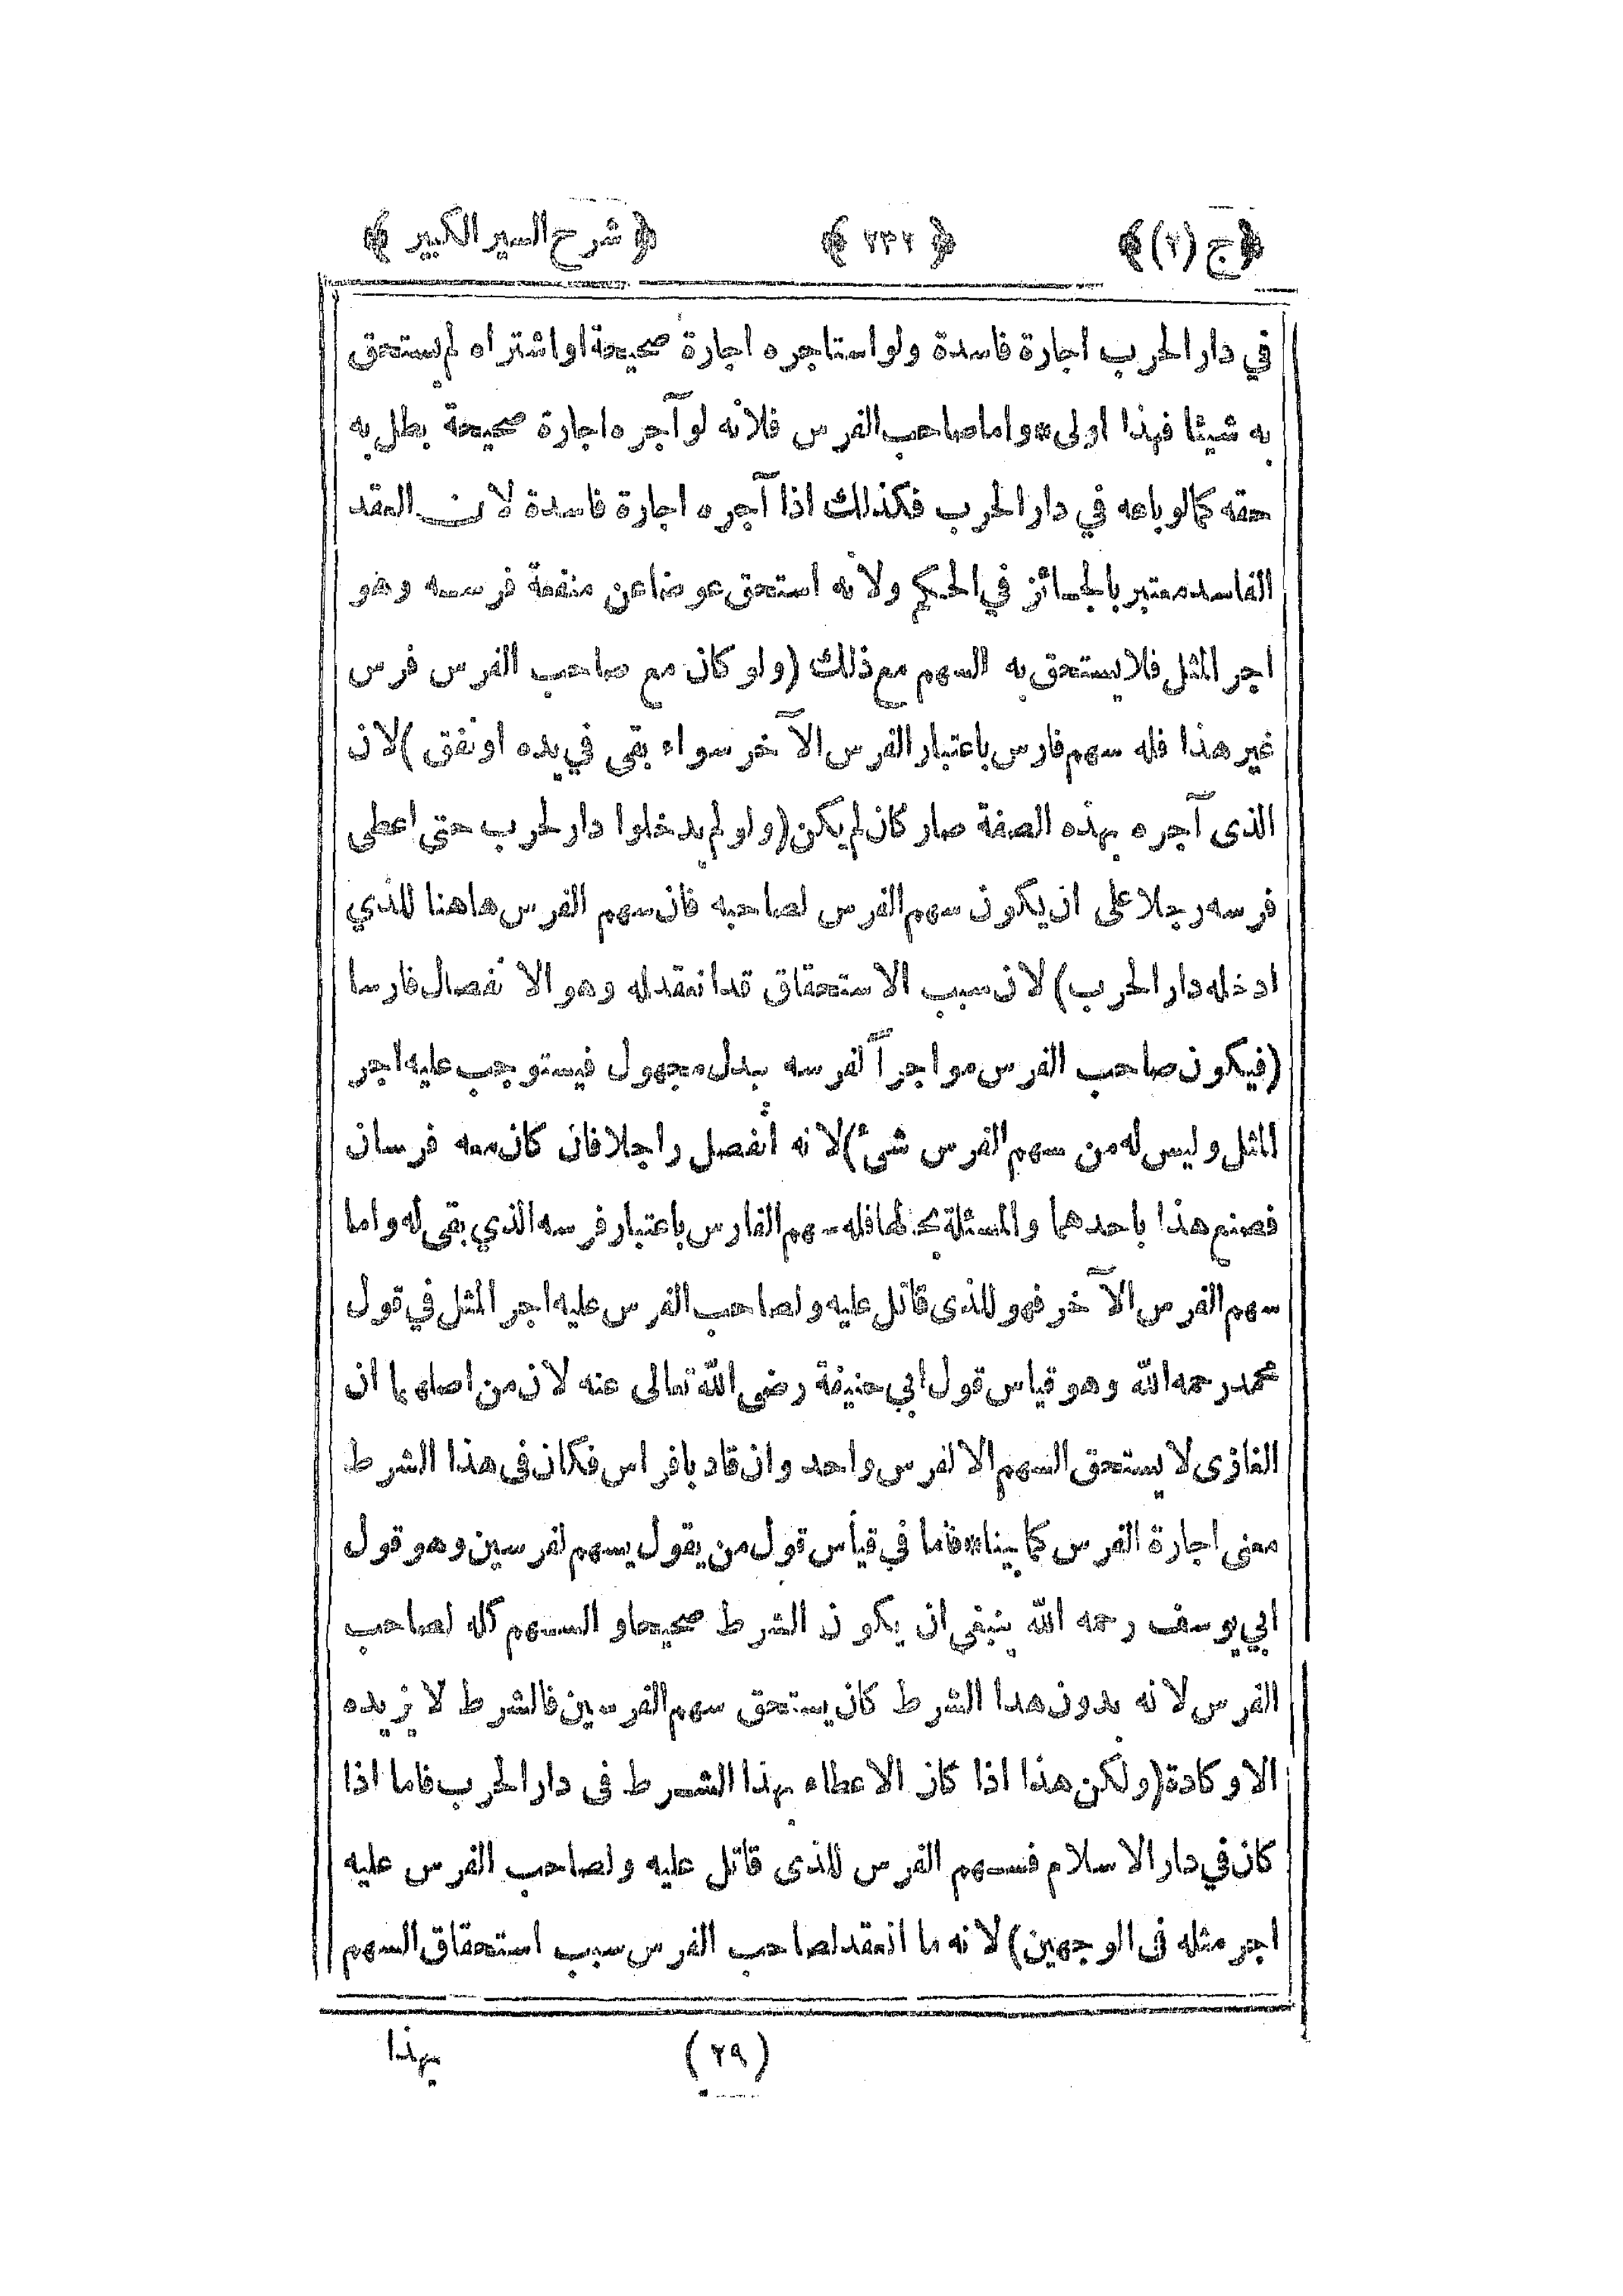 ﴿ج (٢)﴾ ﴿٢٣٢﴾ ﴿شرح السير الكبير﴾
في دار الحرب اجارة فاسدة ولو استاجره اجارة صحيحة او اشتراه لم يستحق
به شيئا فهذا اولى* واما صاحب الفرس فلانه لو آجره اجارة صحيحة بطل به
حقه كما لو باعه في دار الحرب فكذلك اذا آجره اجارة فاسدة لان العقد
الفاسد معتبر بالجائز في الحكم ولانه استحق عوضا عن منفعة فرسه وهو
اجر المثل فلا يستحق به السهم مع ذلك (ولو كان مع صاحب الفرس فرس
غير هذا فله سهم فارس باعتبار الفرس الآخر سواء بقى في يده او نفق) لان
الذى آجره بهذه الصفة صار كان لم يكن (ولو لم يدخلوا دار لحرب حتى اعطى
فرسه رجلا على ان يكون سهم الفرس لصاحبه فان سهم الفرس هاهنا للذي
ادخله دار الحرب) لان سبب الاستحقاق قد انعقد له وهو الانفصال فارسا
(فيكون صاحب الفرس مواجراً لفرسه ببدل مجهول فيستوجب عليه اجر
المثل وليس له من سهم الفرس شئ) لانه انفصل راجلا فان كان معه فرسان
فصنع هذا باحدهما والمسئلة بحالها فله سهم الفارس باعتبار فرسه الذي بقى له واما
سهم الفرس الآخر فهو للذى قاتل عليه ولصاحب الفرس عليه اجر المثل في قول
محمد رحمه الله وهو قياس قول ابي حنيفة رضى الله تعالى عنه لان من اصلهما ان
الغازى لا يستحق السهم الا لفرس واحد وان قاد بافراس فكان فى هذا الشرط
معنى اجارة الفرس كما بينا* فاما في قياس قول من يقول يسهم لفرسين وهو قول
ابي يوسف رحمه الله ينبغى ان يكون الشرط صحيحا والسهم كله لصاحب
الفرس لانه بدون هذا الشرط كان يستحق سهم الفرسين فالشرط لا يزيده
الا وكادة (ولكن هذا اذا كان الاعطاء بهذا الشرط فى دار الحرب فاما اذا
كان في دار الاسلام فسهم الفرس للذى قاتل عليه ولصاحب الفرس عليه
اجر مثله فى الوجهين) لانه ما انعقد لصاحب الفرس سبب استحقاق السهم
(٢٩) بهذا